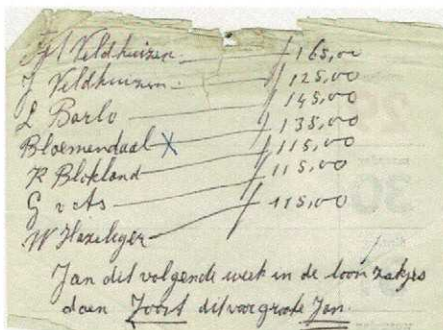 Veldhuizen 165,00
J Veldhuizen 125,00
L Barlo 145,00
Bloemendaal X 135,00
R Blokland 115,00
G v As 115,00
W Hazeleger 115,00
Jan dit volgende week in de loonzakjes
doen Joost dit voor grote Jan
30